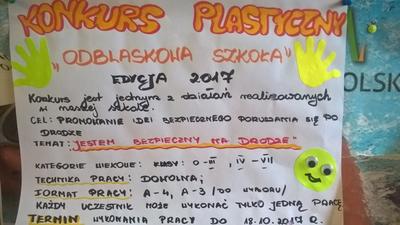 KONKURS PLASTYCZNY
"ODBLASKOWA SZKOŁA"
EDYCJA 2017
Konkurs jest jednym z działań realizowanych
w naszej szkole.
CEL: PROMOWANIE IDEI BEZPIECZNEGO PORUSZANIA SIĘ PO
DRODZE
TEMAT: "JESTEM BEZPIECZNY NA DRODZE"
KATEGORIE WIEKOWE: KLASY: 0-III, IV-VII
TECHNIKA PRACY: DOWOLNA;
FORMAT PRACY: A-4, A-3 /DO WYBORU/
KAŻDY UCZESTNIK MOŻE WYKONAĆ TYLKO JEDNĄ PRACĘ
TERMIN WYKONANIA PRACY DO 18.10.2017 R.
OLSK